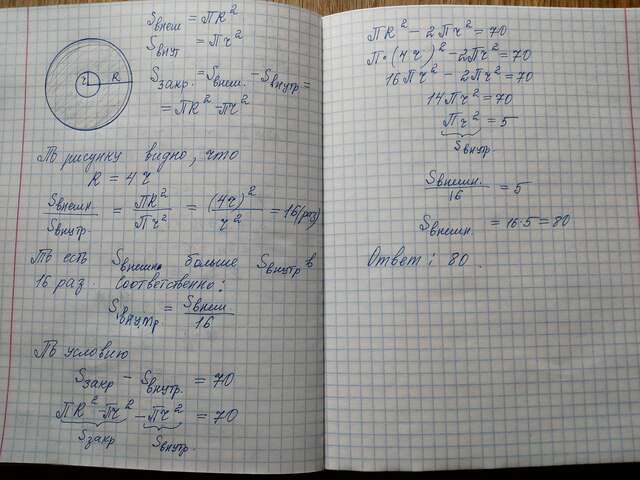 Sвнеш = ПR²
Sвнут = Пч²
Sзакр. = Sвнеш. - Sвнутр =
= ПR² - Пч²
ч R
По рисунку видно, что
R = 4ч
Sвнешн. / Sвнутр. = ПR² / Пч² = (4ч)² / ч² = 16 (раз)
То есть Sвнешн. больше Sвнутр в
16 раз. Соответственно:
Sвнутр = Sвнеш / 16
По условию
Sзакр - Sвнутр. = 70
ПR² - Пч² - Пч² = 70
Sзакр Sвнутр.
ПR² - 2Пч² = 70
П•(4ч)² - 2Пч² = 70
16Пч² - 2Пч² = 70
14Пч² = 70
Пч² = 5
Sвнутр.
Sвнешн. / 16 = 5
Sвнешн. = 16·5 = 80
Ответ: 80.